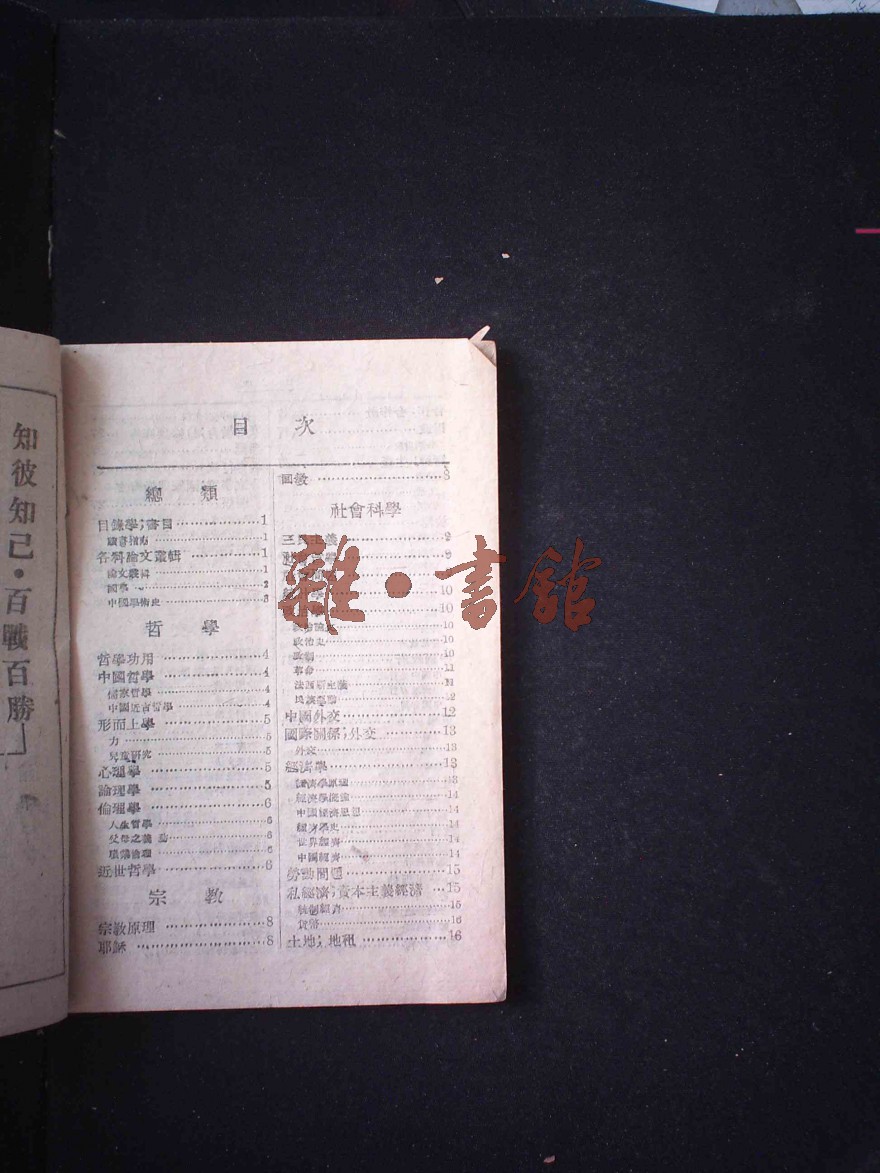 知彼知己·百戰百勝
目 次
總 類
目錄學;書目 1
讀書指南 1
各科論文叢輯 1
論文叢輯 1
國學 2
中國學術史 3
哲 學
哲學功用 4
中國哲學 4
儒家哲學 4
中國近古哲學 4
形而上學 5
力 5
兒童研究 5
心理學 5
論理學 5
倫理學 6
人生哲學 6
父母之義務 6
職業倫理 6
近世哲學 6
宗 教
宗教原理 8
耶穌 8
回教 8
社會科學
三民主義 9
9
10
10
政治論文 10
政治史 10
政制 10
革命 11
法西斯主義 11
民族運動 12
中國外交 12
國際關係;外交 13
外交 13
經濟學 13
經濟學原理 13
經濟學概論 14
中國經濟思想 14
經濟學史 14
世界經濟 14
中國經濟 14
勞動問題 15
私經濟;資本主義經濟 15
統制經濟 15
貨幣 16
土地;地租 16
雜·書館